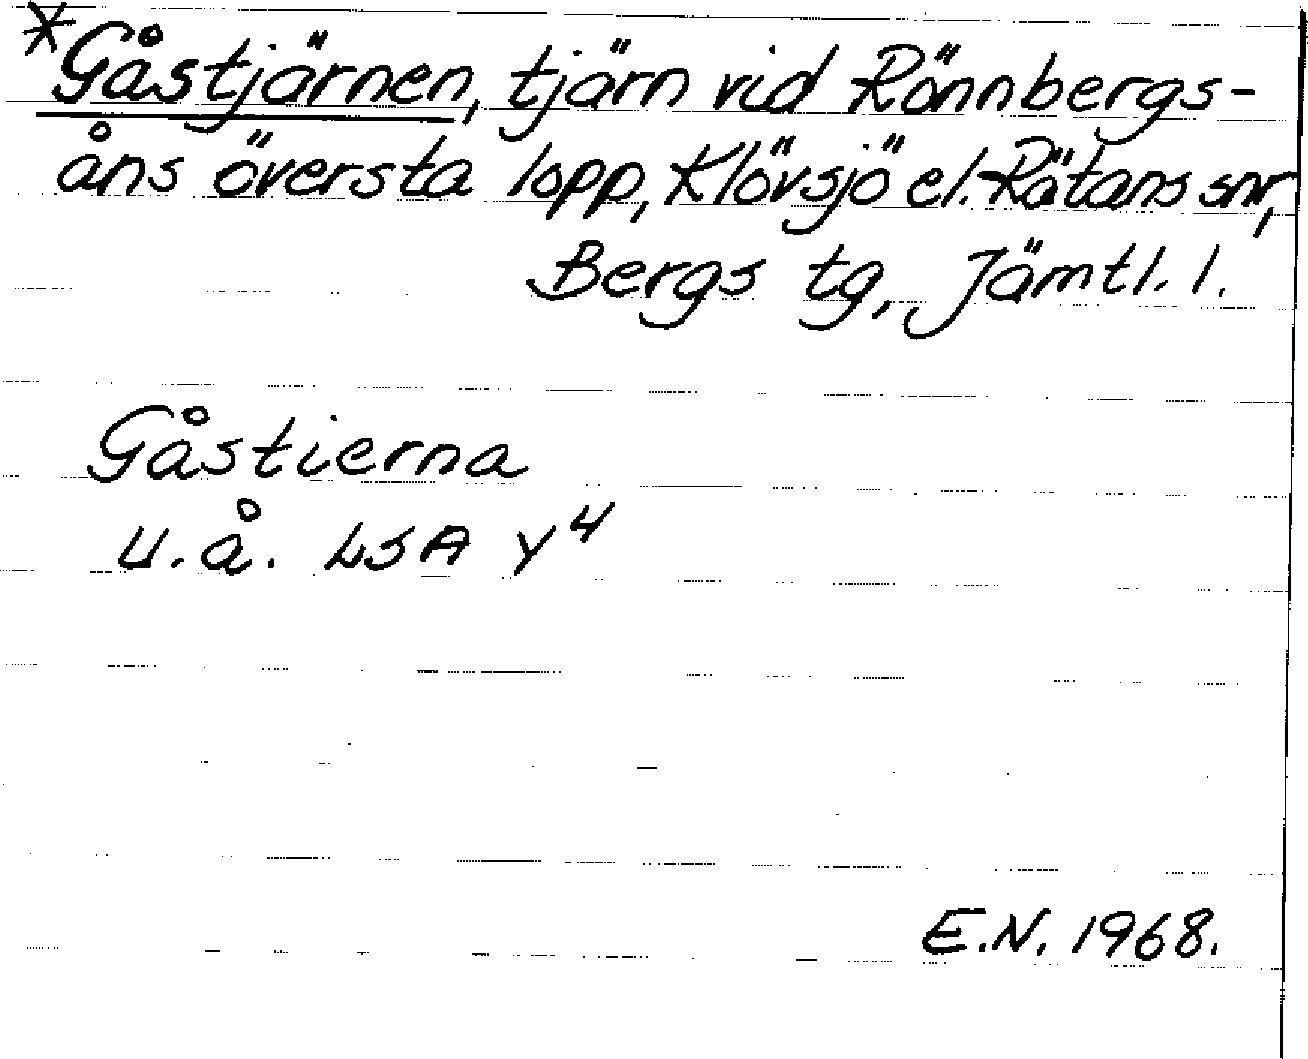 *Gåstjärnen, tjärn vid Rönnbergs-
åns översta lopp, Klövsjö el. Rätans snr,
Bergs tg, Jämtl. l.
Gåstierna
u.å. LSA Y4
E.N. 1968.